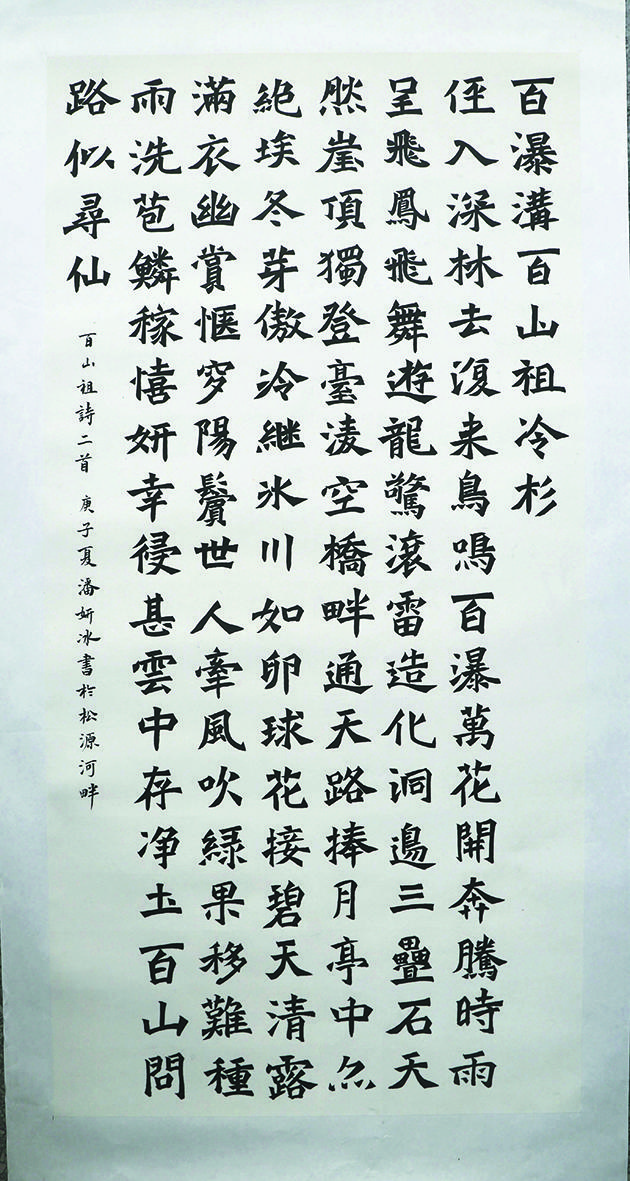 百瀑溝百山祖冷杉
侄入深林去復来鳥鳴百瀑萬花開奔騰時雨
呈飛鳳飛舞遊龍驚滾雷造化洞邊三疊石天
然崖頂獨登臺淩空橋畔通天路捧月亭中尒
絶埃冬芽傲冷継氷川如卵球花接碧天清露
滿衣幽賞愜穸陽鬢世人牽風吹緑果移難種
雨洗苞鱗稼憘妍幸侵甚雲中存净土百山問
路似尋仙
百山祖詩二首 庚子夏潘妍冰書於松源河畔